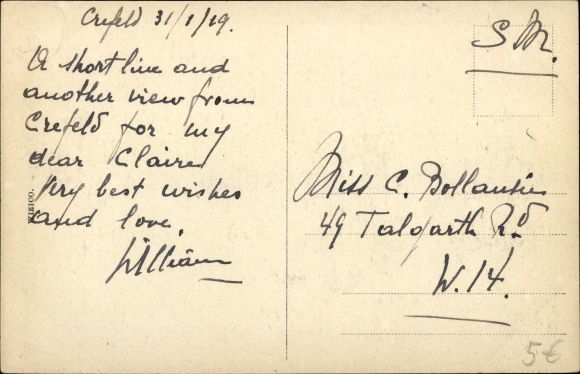 Crefeld 31/1/19.
A short line and
another view from
Crefeld for my
dear Claire
Very best wishes
and love.
William
S M.
Miss C. Bollansie
49 Talgarth Rd
W. 14.
5€